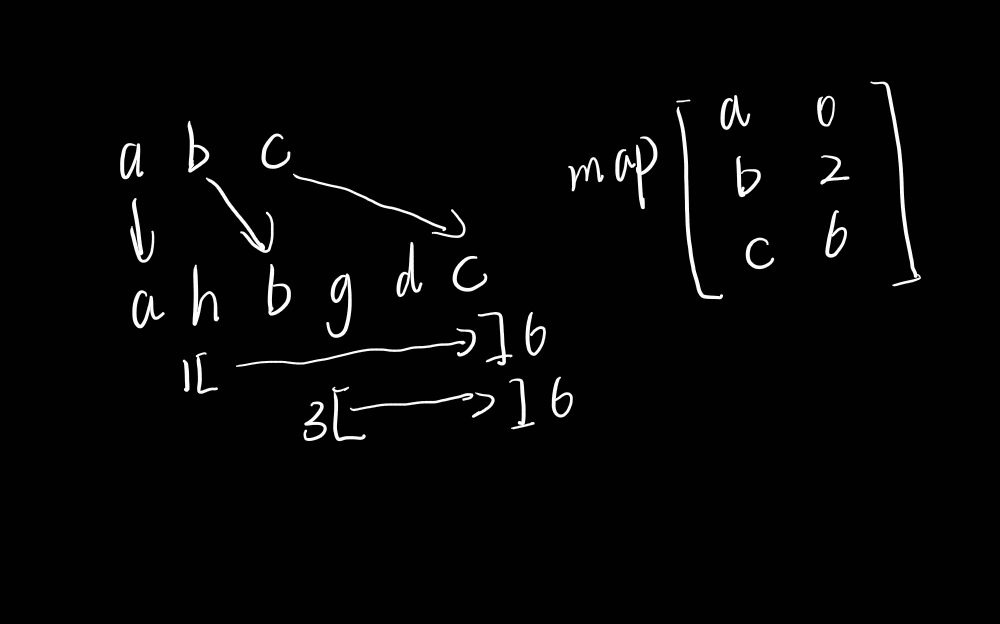 a b c
a h b g d c
1[ ] 6
3[ ] 6
map
a 0
b 2
c 6